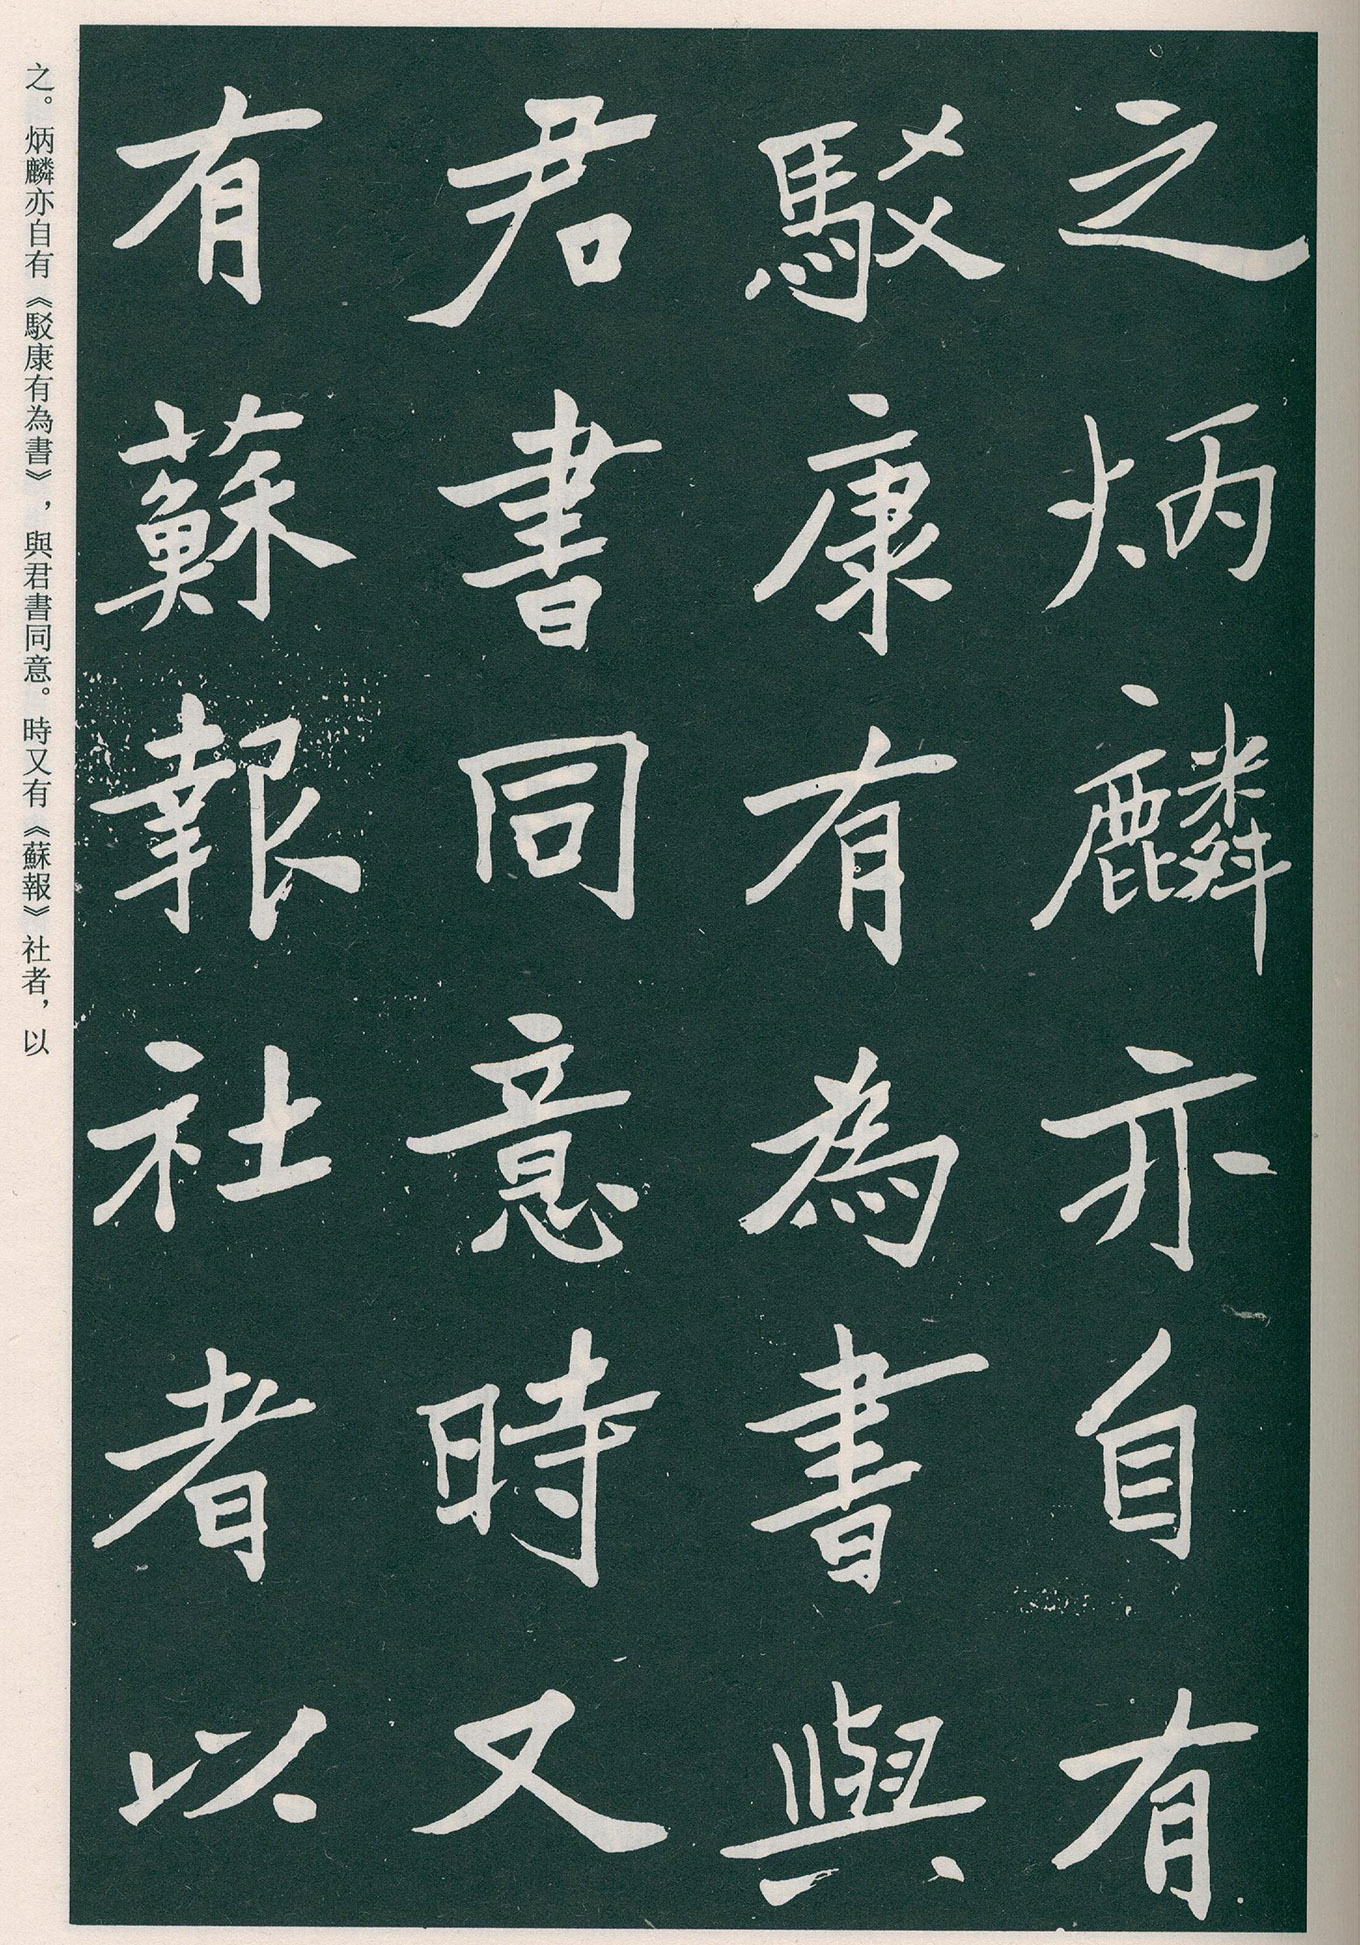 之炳麟亦自有
駁康有為書與
君書同意時又
有蘇報社者以
之。炳麟亦自有《駁康有為書》，與君書同意。時又有《蘇報》社者，以